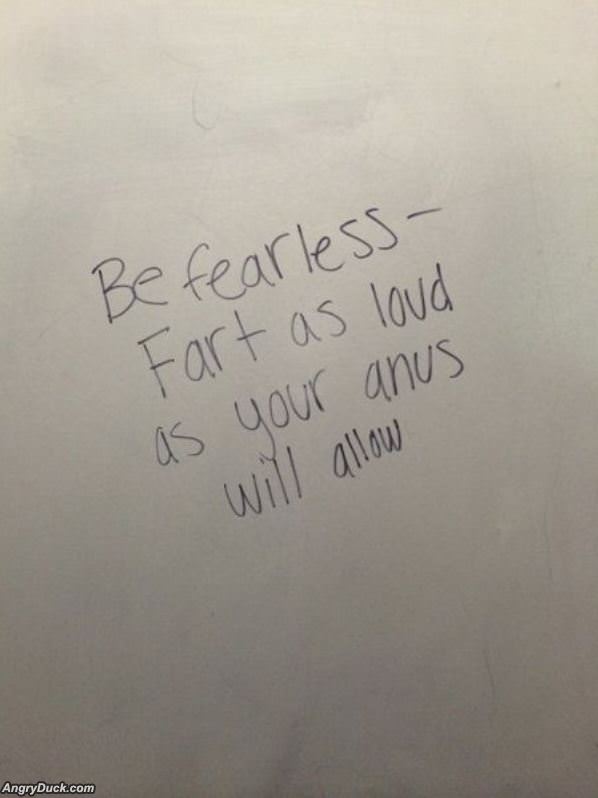 Be fearless-
Fart as loud
as your anus
will allow
AngryDuck.com